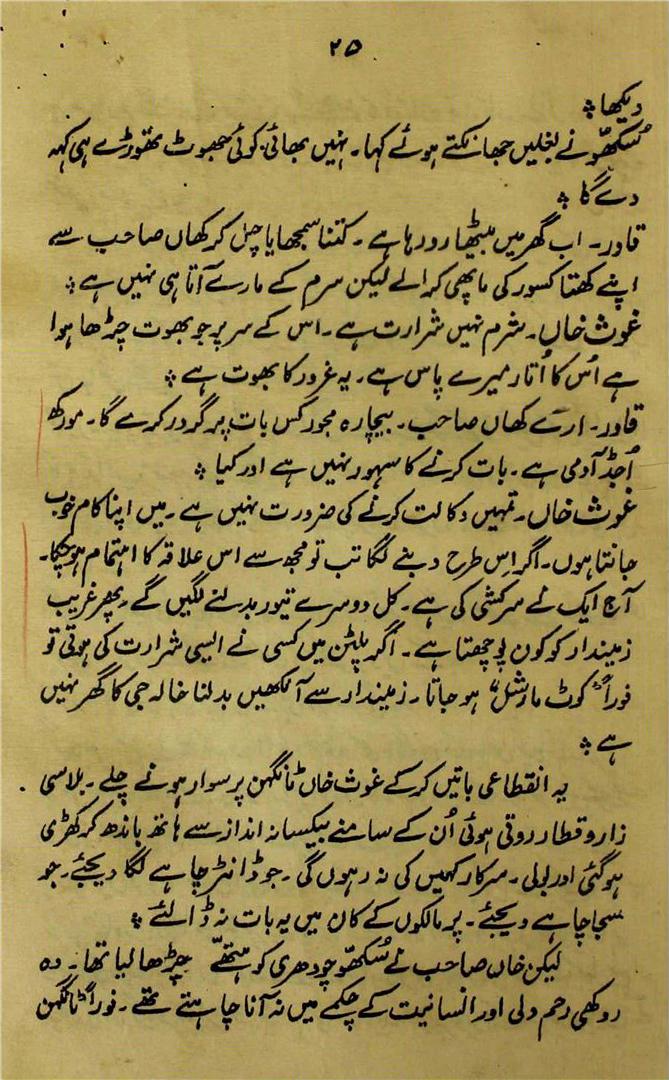 ۲۵
دیکھا ؞
سُکھّو نے بغلیں جھانکتے ہوئے کہا۔ نہیں بھائی۔ کوئی جھوٹ تھوڑے ہی کہہ
دے گا ؞
قادر۔ اب گھر میں بیٹھا رو رہا ہے۔ کتنا سمجھایا چل کر کھاں صاحب سے
اپنے کھتا کسور کی ماپھی کرالے لیکن سرم کے مارے آتا ہی نہیں ہے ؞
غوث خاں۔ شرم نہیں شرارت ہے۔ اس کے سر پر جو بھوت چڑھا ہوا
ہے اُس کا اُتار میرے پاس ہے۔ یہ غرور کا بھوت ہے ؞
قادر۔ ارے کھاں صاحب۔ بیچارہ مجور کس بات پر گردر کرے گا۔ مورکھ
اُجڈ آدمی ہے۔ بات کرنے کا سہور نہیں ہے اور کیا ؞
غوث خاں۔ تمہیں وکالت کرنے کی ضرورت نہیں ہے۔ میں اپنا کام خوب
جانتا ہوں۔ اگر اِس طرح دبنے لگا تب تو مجھ سے اس علاقہ کا اہتمام ہو چکا۔
آج ایک نے سرکشی کی ہے۔ کل دوسرے تیور بدلنے لگیں گے۔ پھر غریب
زمیندار کو کون پوچھتا ہے۔ اگر پلٹن میں کسی نے ایسی شرارت کی ہوتی تو
فوراً "کوٹ مارشل" ہو جاتا۔ زمیندار سے آنکھیں بدلنا خالہ جی کا گھر نہیں
ہے ؞
یہ انقطاعی باتیں کرکے غوث خاں ٹانگھن پر سوار ہونے چلے۔ بلاسی
زار و قطار روتی ہوئی اُن کے سامنے بیکسانہ انداز سے ہاتھ باندھ کر کھڑی
ہو گئی اور بولی۔ سرکار کہیں کی نہ رہوں گی۔ جو ڈانٹر چاہے لگا دیجئے۔ جو
سجا چاہے دیجئے۔ پر مالکوں کے کان میں یہ بات نہ ڈالئے ؞
لیکن خاں صاحب نے سُکھّو چودھری کو ہتھّے چڑھا لیا تھا۔ وہ
روکھی رحم دلی اور انسانیت کے چکمے میں نہ آنا چاہتے تھے۔ فوراً ٹانگھن